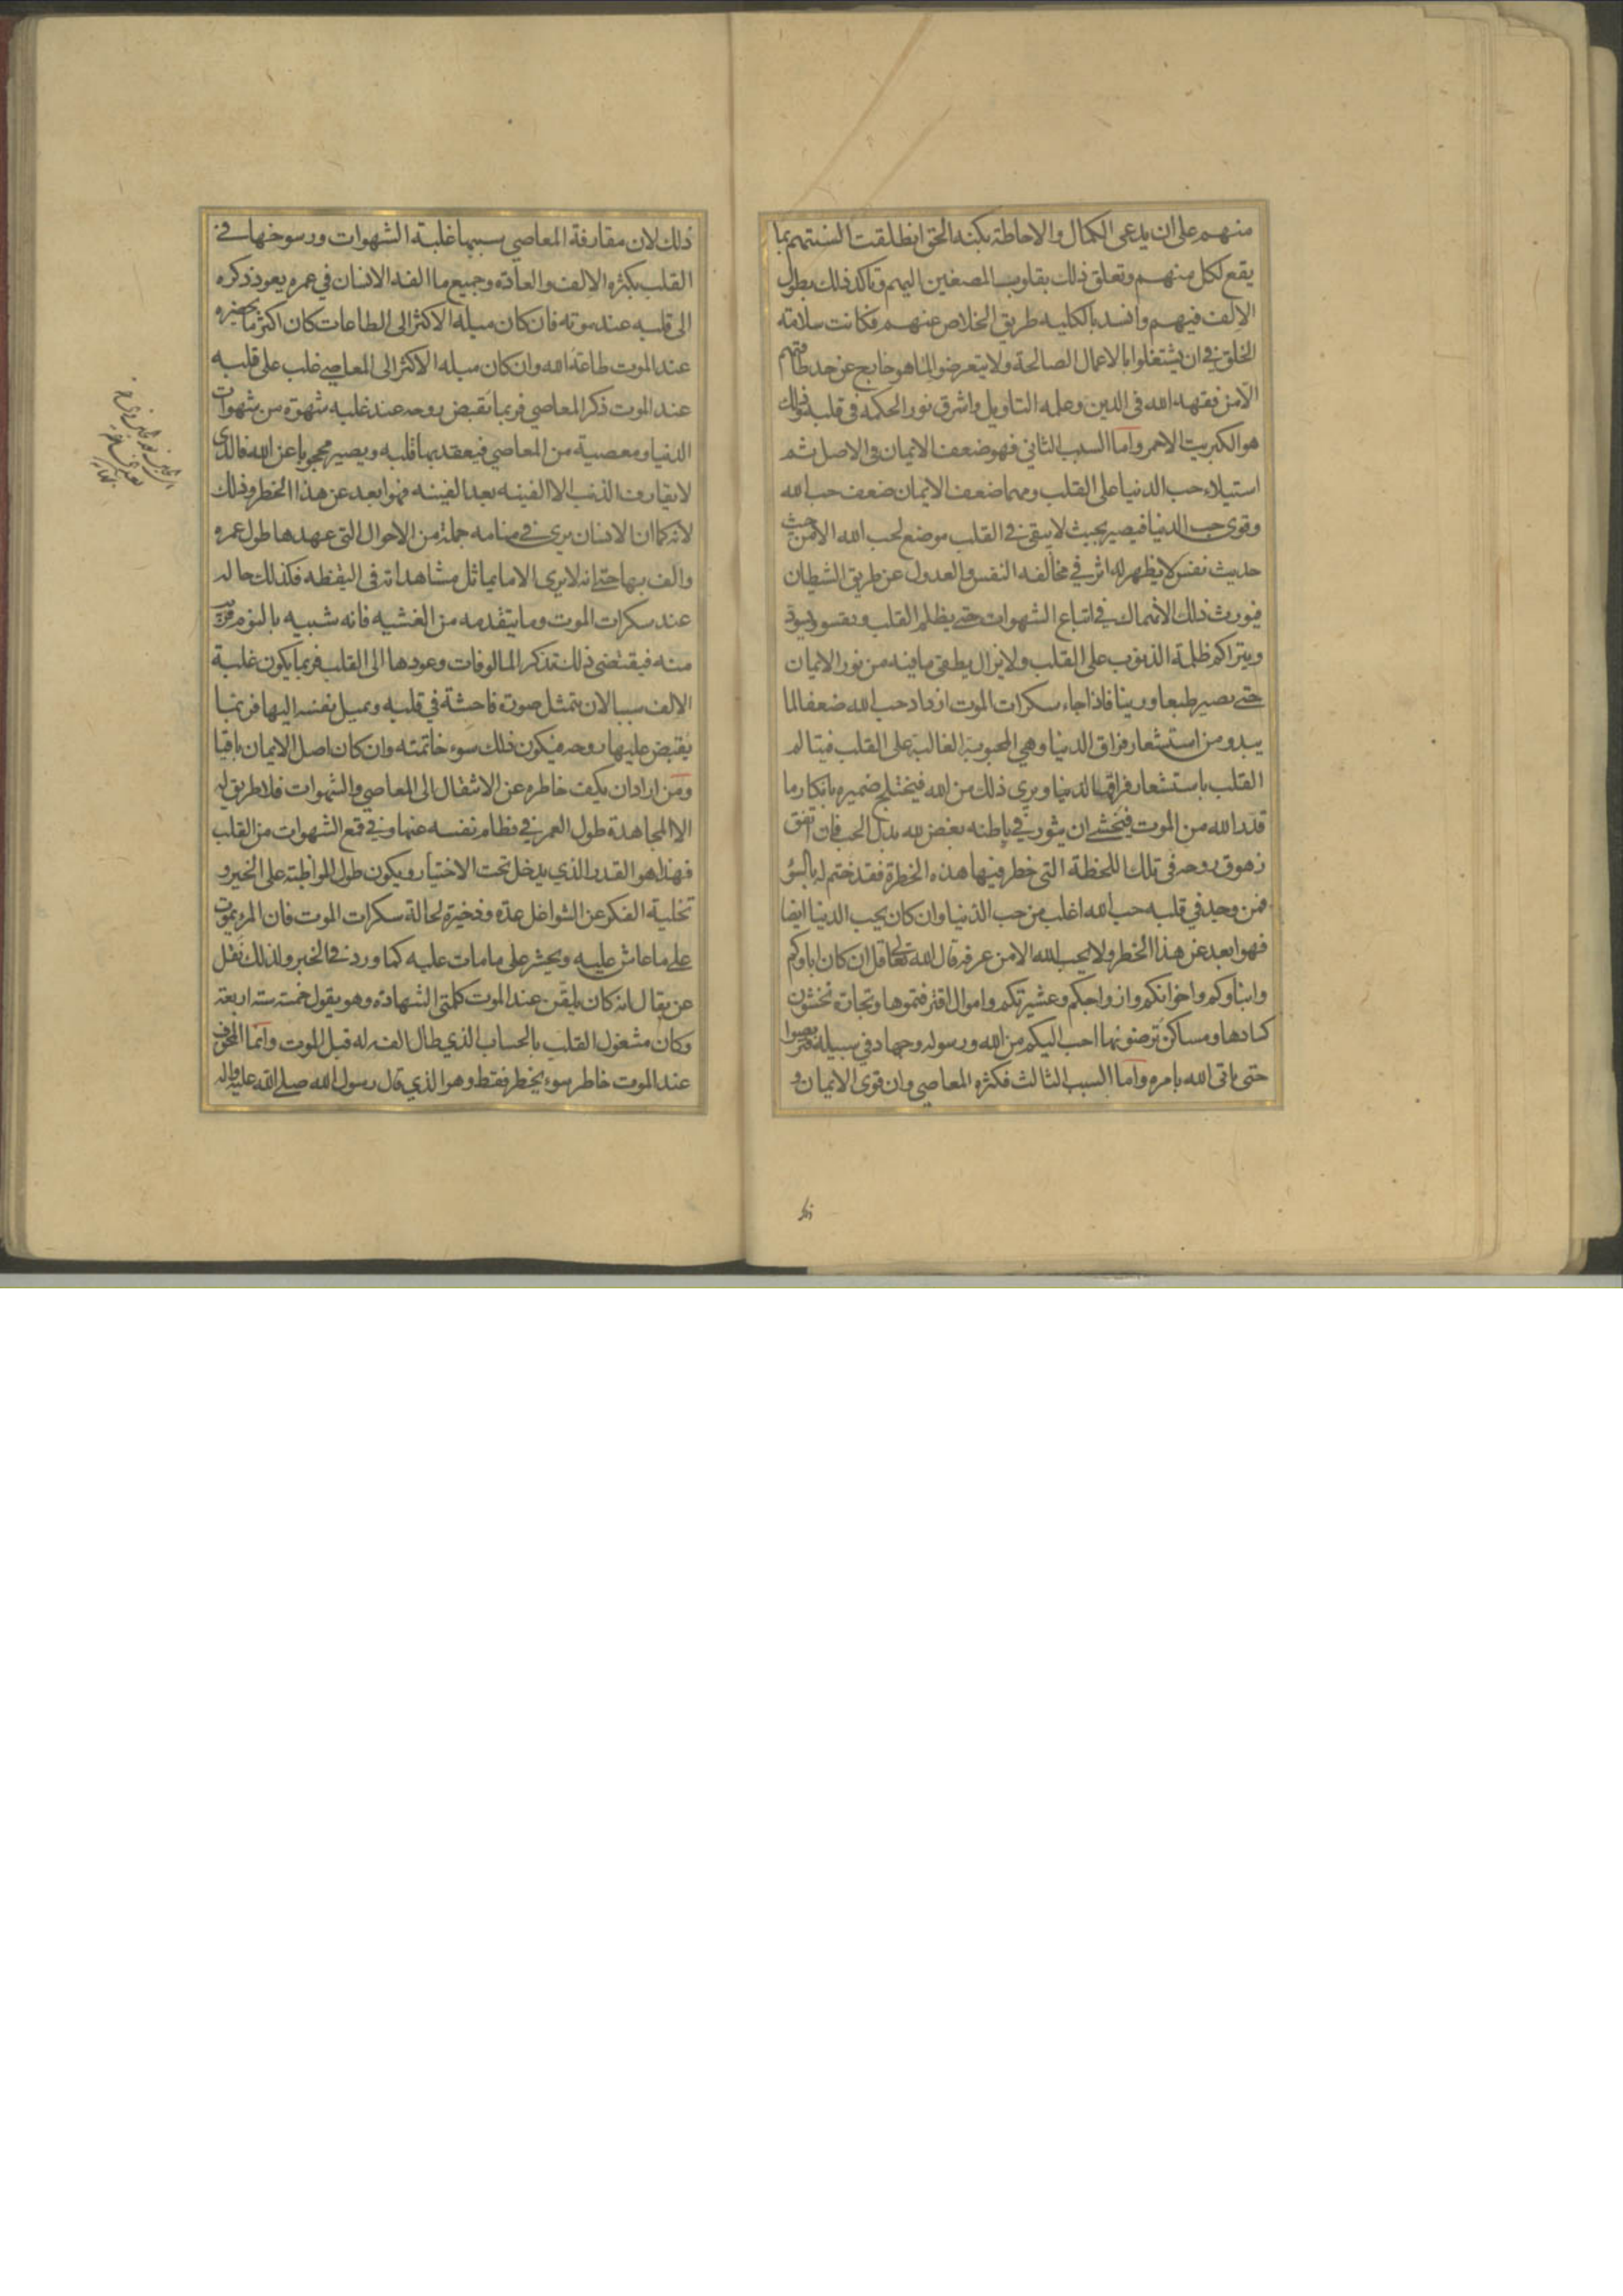 منهم على ان يدعى الكمال والاحاطة بكنه الحق انطلقت السنتهم بما
يقع لكل منهم وتعلق ذلك بقلوب المصغين اليهم وتاكد ذلك بطول
الالف فيهم وانسد بالكليه طريق الخلاص عنهم فكانت سلامته
الخلق في ان يشتغلوا بالاعمال الصالحة ولا يتعرضوا لما هو خارج عن حد طاقتهم
الا من فقهه الله فى الدين وعلمه التاويل واشرق نور الحكمه فى قلبه وذلك
هو الكبريت الاحمر واما السبب الثاني فهو ضعف الايمان فى الاصل ثم
استيلاء حب الدنيا على القلب ومهما ضعف الايمان ضعف حب الله
وقوى حب الدنيا فيصير بحيث لا يبقى في القلب موضع لحب الله الا من حيث
حديث نفس لا يظهر له اثر في مخالفه النفس والعدول عن طريق الشيطان
فيورث ذلك الانهماك في اتباع الشهوات حتى يظلم القلب ويقسو ويسود
ويتراكم ظلمة الذنوب على القلب ولا يزال يطفى ما فيه من نور الايمان
حتى يصير طبعا ورينا فاذا جاء سكرات الموت ازداد حب الله ضعفا لما
يبدو من استشعار فراق الدنيا وهي المحبوبة الغالبة على القلب فيتالم
القلب باستشعار فراق الدنيا ويرى ذلك من الله فيختلج ضميره بانكار ما
قدر الله من الموت فيخشى ان يثور في باطنه بغض لله بدل الحب فان اتفق
زهوق روحه فى تلك اللحظة التى خطر فيها هذه الخطرة فقد ختم له بالسوء
فمن وجد في قلبه حب الله اغلب من حب الدنيا وان كان يحب الدنيا ايضا
فهو ابعد عن هذا الخطر ولا يحب الله الا من عرفه قال الله تعالى قل ان كان اباوكم
وابناوكم واخوانكم وازواجكم وعشيرتكم واموال اقترفتموها وتجارة تخشون
كسادها ومساكن ترضونها احب اليكم من الله ورسوله وجهاد في سبيله فتربصوا
حتى ياتى الله بامره واما السبب الثالث فكثره المعاصي وان قوى الايمان و
ذلك لان مقارفة المعاصي سببها غلبة الشهوات ورسوخها في
القلب بكثره الالف والعادة وجميع ما الفه الانسان في عمره يعود ذكره
الى قلبه عند موته فان كان ميله الاكثر الى الطاعات كان اكثر ما يحضره
عند الموت طاعة الله وان كان ميله الاكثر الى المعاصي غلب على قلبه
عند الموت ذكر المعاصي فربما تقبض روحه عند غلبه شهوة من شهوات
الدنيا ومعصية من المعاصي فيعقد بها قلبه ويصير محجوبا عن الله فالذى
لا يقارف الذنب الا الفينه بعد الفينه فهو ابعد عن هذا الخطر وذلك
لانه كما ان الانسان يرى في منامه جملة من الاحوال التى عهدها طول عمره
والف بها حتى انه لا يرى الا ما يماثل مشاهداته فى اليقظه فكذلك حاله
عند سكرات الموت وما يتقدمه من الغشيه فانه شبيه بالنوم قريب
منه فيقتضى ذلك تذكر المالوفات وعودها الى القلب فربما يكون غلبة
الالف سببا لان تتمثل صورة فاحشة في قلبه ويميل نفسه اليها فربما
يقبض عليها روحه فيكون ذلك سوء خاتمته وان كان اصل الايمان باقيا
ومن اراد ان يكف خاطره عن الانتقال الى المعاصي والشهوات فلا طريق له
الا المجاهدة طول العمر في فطام نفسه عنها وفي قمع الشهوات من القلب
فهذا هو القدر الذي يدخل تحت الاختيار ويكون طول المواظبة على الخير و
تخلية الفكر عن الشواغل عدة وذخيرة لحالة سكرات الموت فان المرء يموت
على ما عاش عليه ويحشر على ما مات عليه كما ورد في الخبر ولذلك نقل
عن بقال انه كان يلقن عند الموت كلمتى الشهادة وهو يقول خمسة ستة اربعة
وكان مشغول القلب بالحساب الذي طال الفه له قبل الموت وانما المخوف
عند الموت خاطر سوء يخطر فقط وهو الذي قال رسول الله صلى الله عليه واله
ذلك